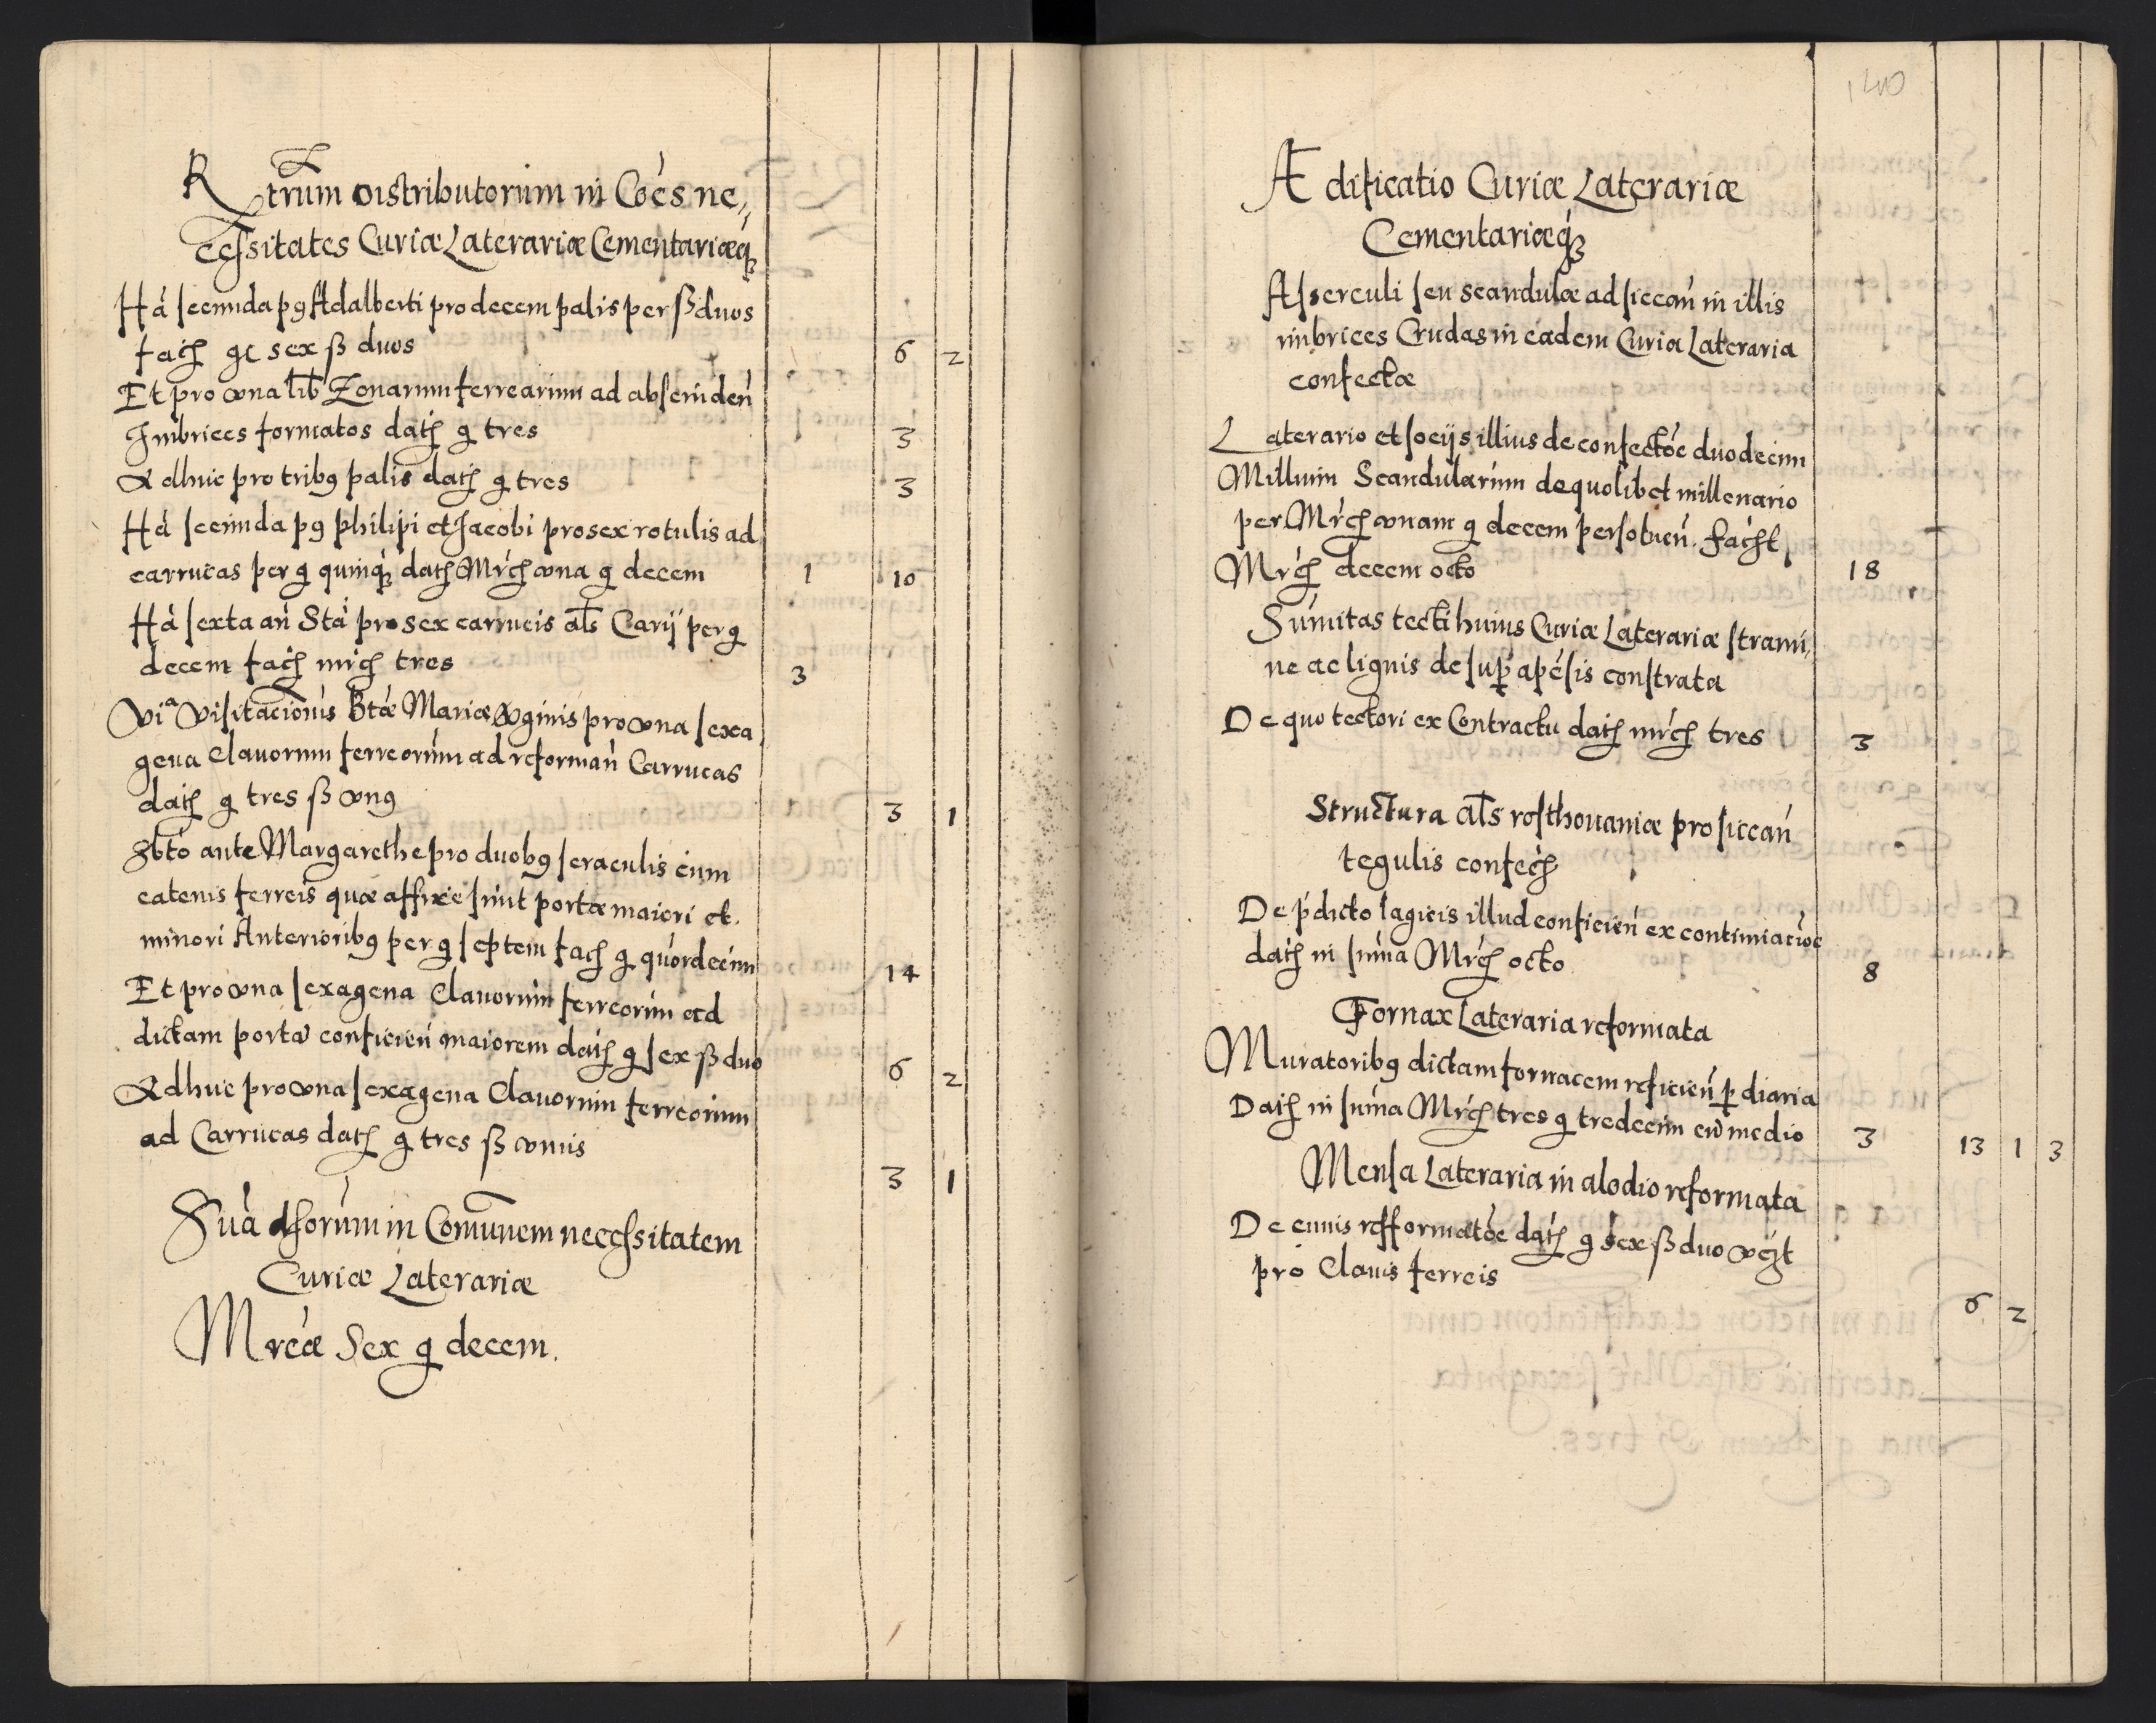 Rtrum distributorum in Coe͞s ne„
cessitates Curiæ Laterariæ Cementariæq́ꝫ
Ha secunda pꝯ Adalberti pro decem palis per ß duos
facit gͨ sex ß duos 6 2
Et pro vna lib Zonarum ferrearum ad abscinden̄
Imbrices formatos dat̄ g tres 3
Adhuc pro tribꝯ palis dat̄ g tres 3
Ha secunda pꝯ Philipi et Jacobi pro sex rotulis ad
carrucas per g quinq́ꝫ dat̄ Mrc̄ vna g decem 1 10
Ha sexta an̄ Sta pro sex carrucis als Carij per g
decem fac̄ mrc̄ tres 3
Viᵃ Visitacionis Btæ Mariæ Vginis pro vna sexa
gena Clauorum ferreorum ad reforman̄ Carrucas
dat̄ g tres ß vnꝯ 3 1
Sbto ante Margarethe pro duobꝯ seraculis cum
catenis ferreis quæ affixe sunt portæ maiori et
minori Anterioribꝯ per g septem fac̄ g quordecim 14
Et pro vna sexagena Clauorum ferreorum ad
dictam porta conficien̄ maiorem dat̄ g sex ß duo 6 2
Adhuc pro vna sexagena Clauorum ferreorum
ad Carrucas dat̄ g tres ß vnus 3 1
Sua dsorum in Comunem necessitatem
Curiæ Laterariæ
Mrcæ Sex g decem.
140
Ædificatio Curiæ Laterariæ
Cementariæq́ꝫ
Asserculi seu scandulæ ad siccan̄ in illis
imbrices Crudas in eadem Curia Lateraria
confectæ
Laterario et socijs illius de confectoe duodecim
Millium Scandularum de quolibet millenario
per Mrc̄ vnam g decem persoluen̄. fac̄t
Mrc̄ decem octo 18
Sumitas tecti huius Curiæ Laterariæ strami,
ne ac lignis desup̱ apēsis constrata
De quo tectori ex Contractu dat̄ mrc̄ tres 3
Structura als rosthouaniæ pro siccan̄
tegulis confec̄
De p̄dicto lagicis illud conficien̄ ex continuacioe
dat̄ in suma Mrc̄ octo 8
Fornax Lateraria reformata
Muratoribꝯ dictam fornacem reficien̄ p̱ diaria
Dat̄ in suma Mrc̄ tres g tredecim cu medio 3 13 1 3
Mensa Lateraria in alodio reformata
De cuius refformatōe dat̄ g sex ß duo
pro Clauis ferreis 6 2